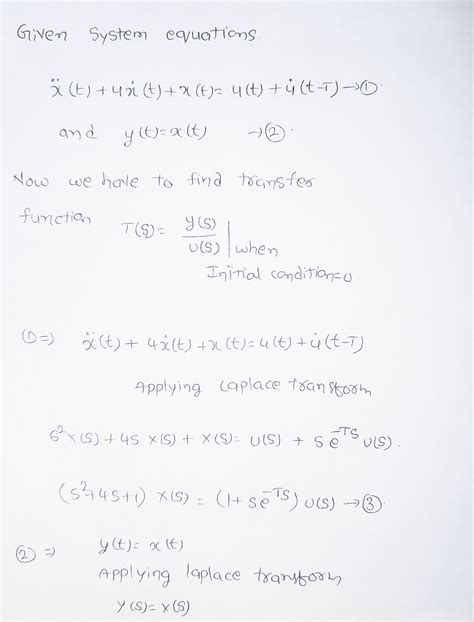 Given System equations.
ẍ(t) + 4ẋ(t) + x(t) = u(t) + u̇(t-T) → ①
and y(t) = x(t) → ②.
Now we have to find transfer
function T(s) = Y(s)/U(s) | when
Initial condition=0
① ⇒ ẍ(t) + 4ẋ(t) + x(t) = u(t) + u̇(t-T)
Applying Laplace transform
s²X(s) + 4s X(s) + X(s) = U(s) + s e^-TS U(s).
(s²+4s+1) X(s) = (1+ s e^-TS) U(s) → ③.
② ⇒ y(t) = x(t)
Applying laplace transform
Y(s) = X(s)